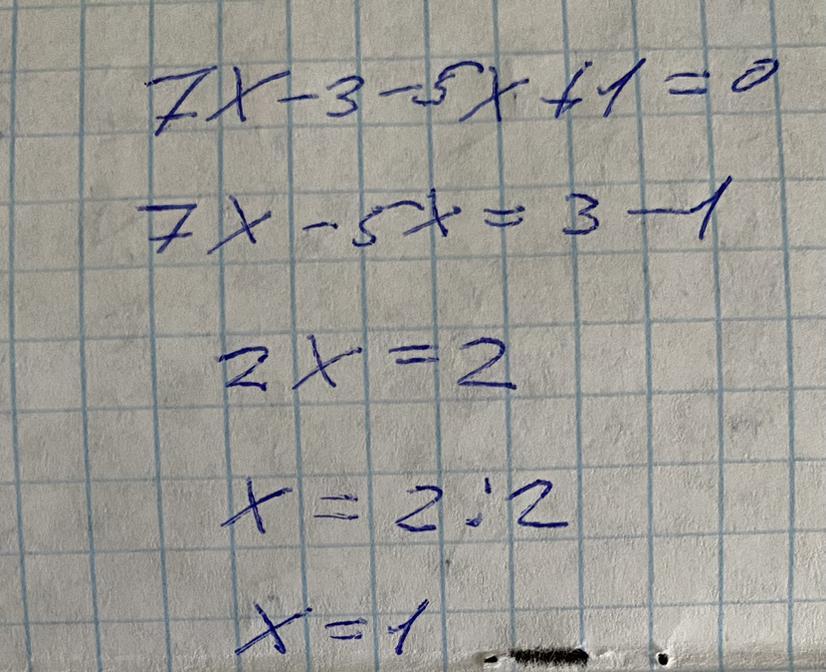 7x-3-5x+1=0
7x-5x=3-1
2x=2
x=2:2
x=1